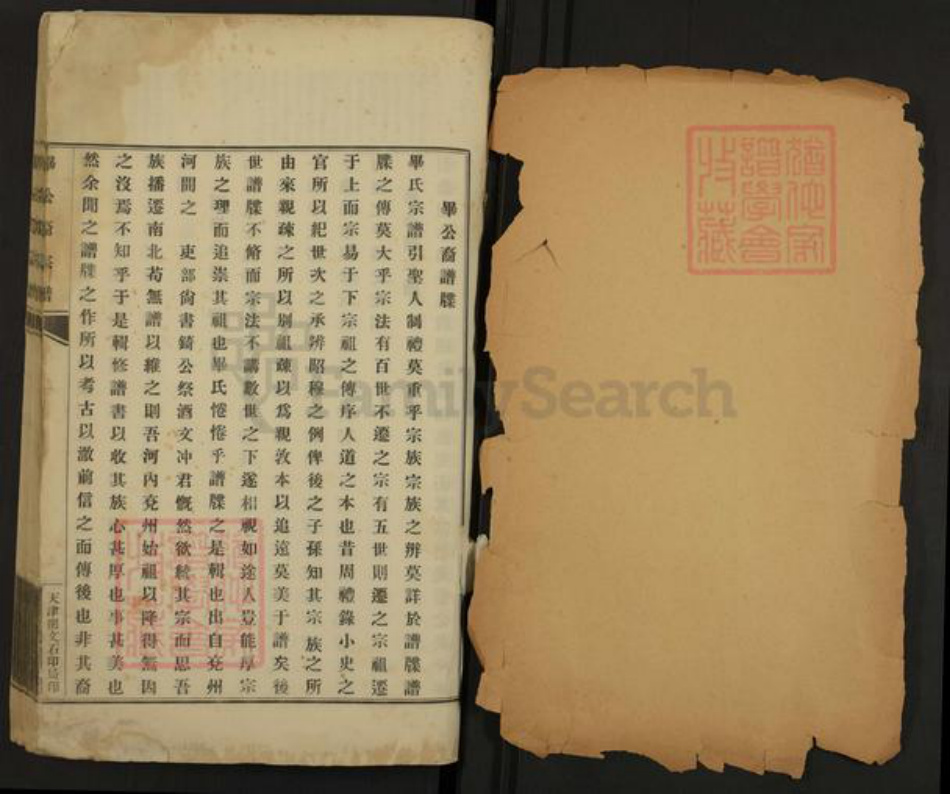 畢公裔譜牒
畢氏宗譜引聖人制禮莫重乎宗族宗族之辨莫詳於譜牒譜
牒之傳莫大乎宗法有百世不遷之宗有五世則遷之宗祖遷
于上而宗易于下宗祖之傳序人道之本也昔周禮錄小史之
官所以紀世次之承辨昭穆之例俾後之子孫知其宗族之所
由來親疎之所以別祖疎以爲親敦本以追遠莫美于譜矣後
世譜牒不脩而宗法不講數世之下遂相視如途人豈能厚宗
族之理而追崇其祖也畢氏惓惓乎譜牒之是輯也出自兗州
河間之 吏部尚書鏘公祭酒文冲君慨然欲統其宗而思吾
族播遷南北苟無譜以維之則吾河內兗州始祖以降得無因
之沒焉不知乎于是輯修譜書以收其族心甚厚也事甚美也
然余聞之譜牒之作所以考古以徵前信之而傳後也非其裔
天津 文石印局印
猶他家
譜學會
收藏
FamilySearch